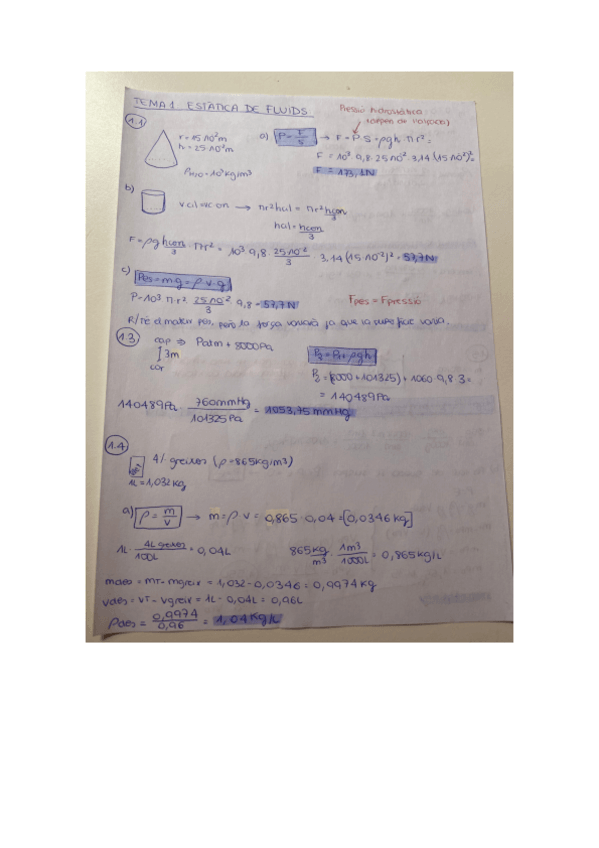 TEMA 1 ESTÀTICA DE FLUIDS
Pressió hidrostàtica
1.1
r = 15·10⁻²m
h = 25·10⁻²m
ρH₂O = 10³ kg/m³
a) P = F/S → F = P·S = ρgh · πr² =
F = 10³ · 9,8 · 25·10⁻² · 3,14 (15·10⁻²)² =
F = 173,1N
b)
Vcil = Vcon → πr² hcil = πr² hcon/3
hcil = hcon/3
F = ρg hcon/3 · πr² = 10³ · 9,8 · 25·10⁻²/3 · 3,14 (15·10⁻²)² = 57,7N
c) Pes = m·g = ρ·V·g
P = 10³ · π·r² · 25·10⁻²/3 · 9,8 = 57,7N
Fpes = Fpressió
R/ Té el mateix pes, però la força variarà ja que la superfície varia.
1.3
cap ⇒ Patm + 8000Pa
3m
cor
P₂ = P₁ + ρgh
P₂ = (8000 + 101325) + 1060 · 9,8 · 3 =
= 140489Pa
140489Pa · 760mmHg/101325Pa = 1053,75mmHg
1.4
4% greixos (ρ = 865kg/m³)
1L = 1,032kg
a) ρ = m/V → m = ρ·V = 0,865 · 0,04 = [0,0346 kg]
1L · 4L greixos/100L = 0,04L
865kg/m³ · 1m³/1000L = 0,865kg/L
mdes = mT - mgreix = 1,032 - 0,0346 = 0,9974kg
Vdes = VT - Vgreix = 1L - 0,04L = 0,96L
ρdes = 0,9974/0,96 = 1,04kg/L